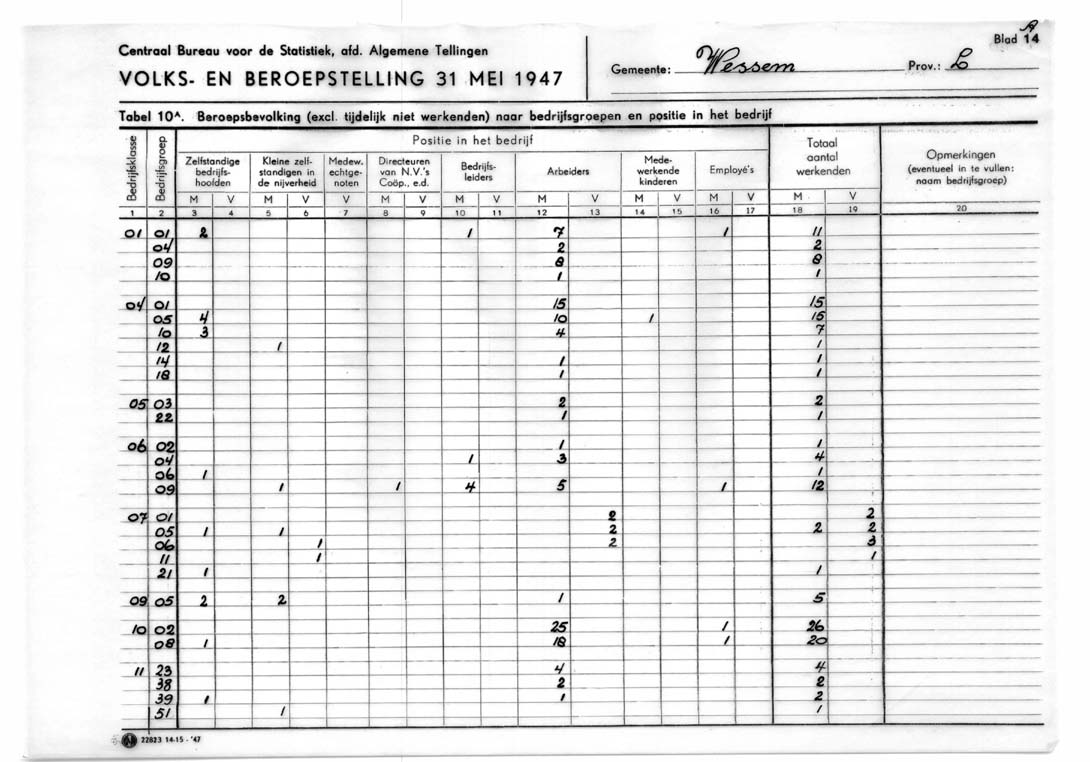 Blad 14 A
Centraal Bureau voor de Statistiek, afd. Algemene Tellingen
VOLKS- EN BEROEPSTELLING 31 MEI 1947
Gemeente: Wessem Prov.: L
Tabel 10A. Beroepsbevolking (excl. tijdelijk niet werkenden) naar bedrijfsgroepen en positie in het bedrijf
Bedrijfsklasse Bedrijfsgroep Positie in het bedrijf Totaal aantal werkenden Opmerkingen (eventueel in te vullen: naam bedrijfsgroep)
Zelfstandige bedrijfshoofden Kleine zelfstandigen in de nijverheid Medew. echtgenoten Directeuren van N.V.'s Coöp., e.d. Bedrijfsleiders Arbeiders Medewerkende kinderen Employé's
M V M V V M V M V M V M V M V M V
1 2 3 4 5 6 7 8 9 10 11 12 13 14 15 16 17 18 19 20
01 01 2 1 7 1 11
04 2 2
09 8 8
10 1 1
04 01 15 15
05 4 10 1 15
10 3 4 7
12 1 1
14 1 1
18 1 1
05 03 2 2
22 1 1
06 02 1 1
04 1 3 4
06 1 1
09 1 1 4 5 1 12
07 01 2 2
05 1 1 2 2 2
06 1 2 3
11 1 1
21 1 1
09 05 2 2 1 5
10 02 25 1 26
08 1 18 1 20
11 23 4 4
38 2 2
39 1 1 2
51 1 1
22823 14-15 - '47